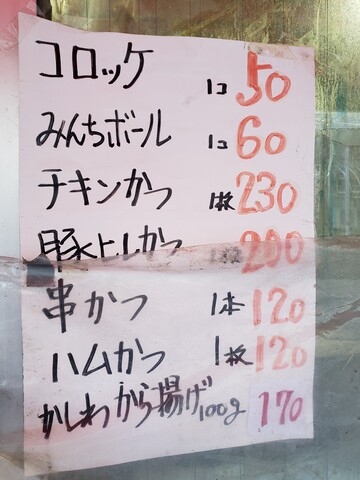 コロッケ 1コ 50
みんちボール 1コ 60
チキンかつ 1枚 230
豚ヒレかつ 200
串かつ 1本 120
ハムかつ 1枚 120
かしわから揚げ 100g 170